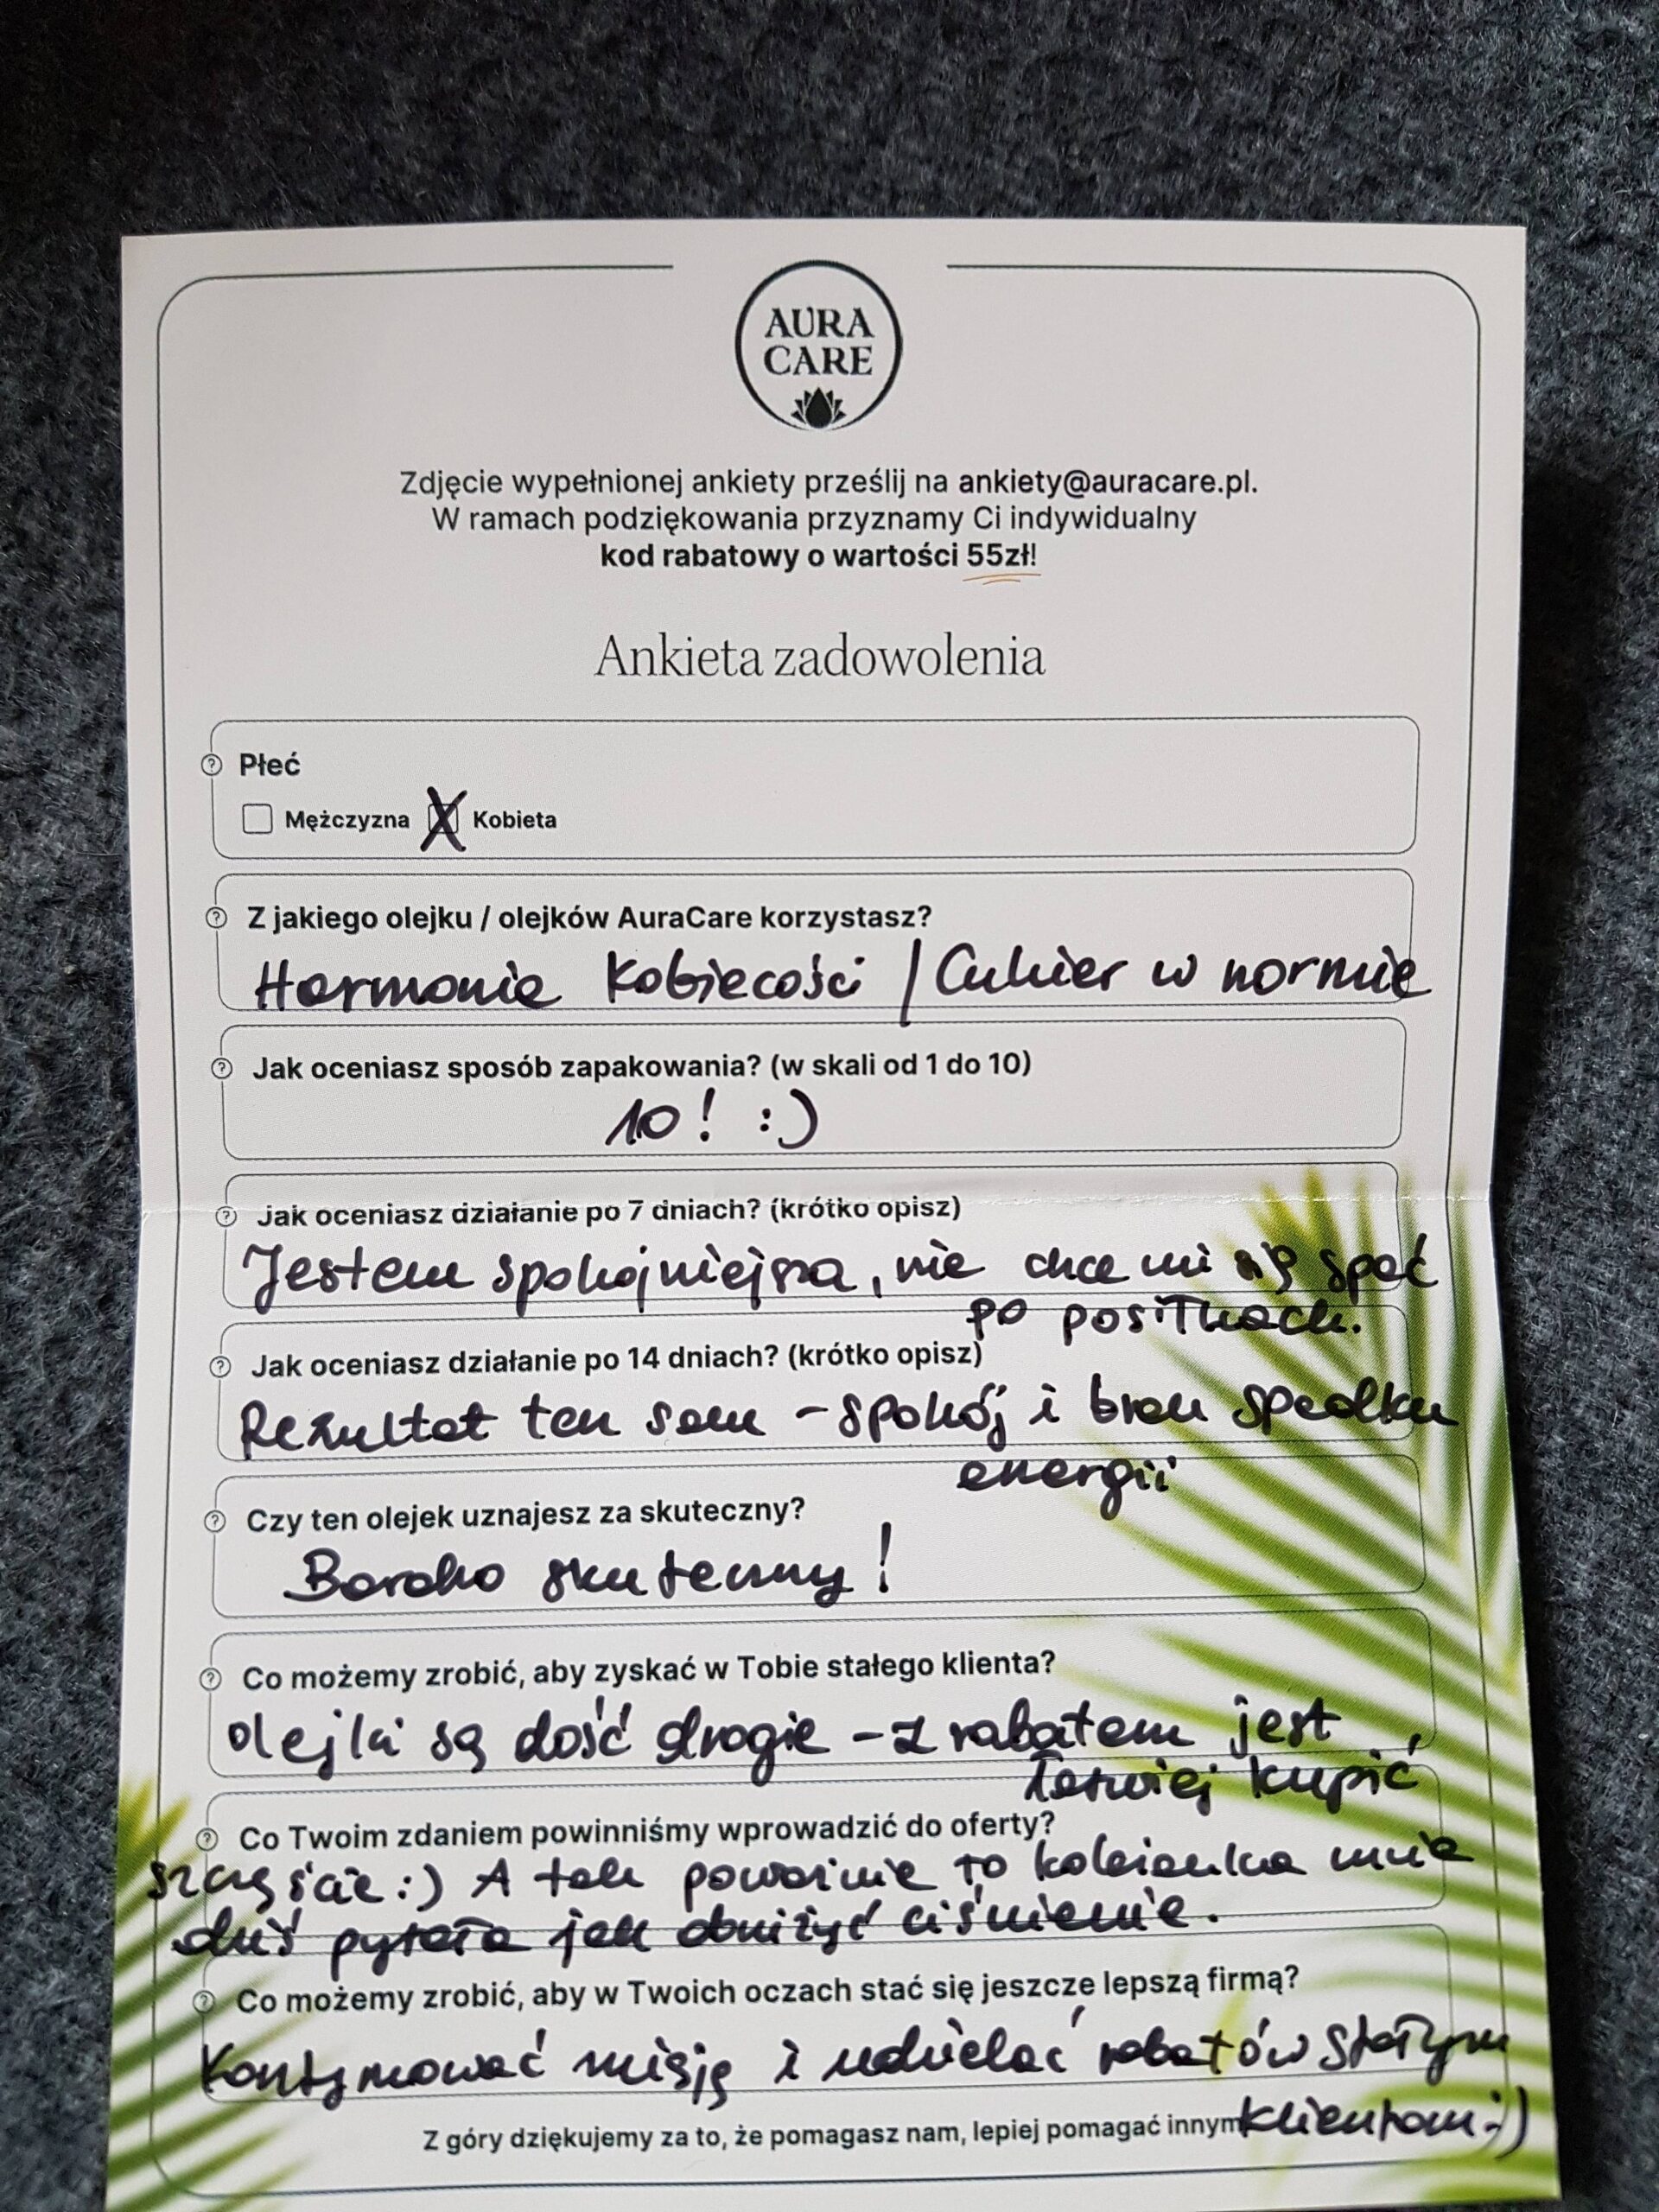 AURA
CARE
Zdjęcie wypełnionej ankiety prześlij na ankiety@auracare.pl.
W ramach podziękowania przyznamy Ci indywidualny
kod rabatowy o wartości 55zł!
Ankieta zadowolenia
Płeć
Mężczyzna X Kobieta
Z jakiego olejku / olejków AuraCare korzystasz?
Harmonia Kobiecości / Cukier w normie
Jak oceniasz sposób zapakowania? (w skali od 1 do 10)
10! :)
Jak oceniasz działanie po 7 dniach? (krótko opisz)
Jestem spokojniejsza, nie chce mi się spać
po posiłkach.
Jak oceniasz działanie po 14 dniach? (krótko opisz)
Rezultat ten sam - spokój i brak spadku
energii
Czy ten olejek uznajesz za skuteczny?
Bardzo skuteczny!
Co możemy zrobić, aby zyskać w Tobie stałego klienta?
olejki są dość drogie - z rabatem jest
łatwiej kupić
Co Twoim zdaniem powinniśmy wprowadzić do oferty?
szczęście :) A tak poważnie to koleżanka mnie
dziś pytała jak obniżyć ciśnienie.
Co możemy zrobić, aby w Twoich oczach stać się jeszcze lepszą firmą?
Kontynuować misję i udzielać rabatów stałym
klientom :)
Z góry dziękujemy za to, że pomagasz nam, lepiej pomagać innym